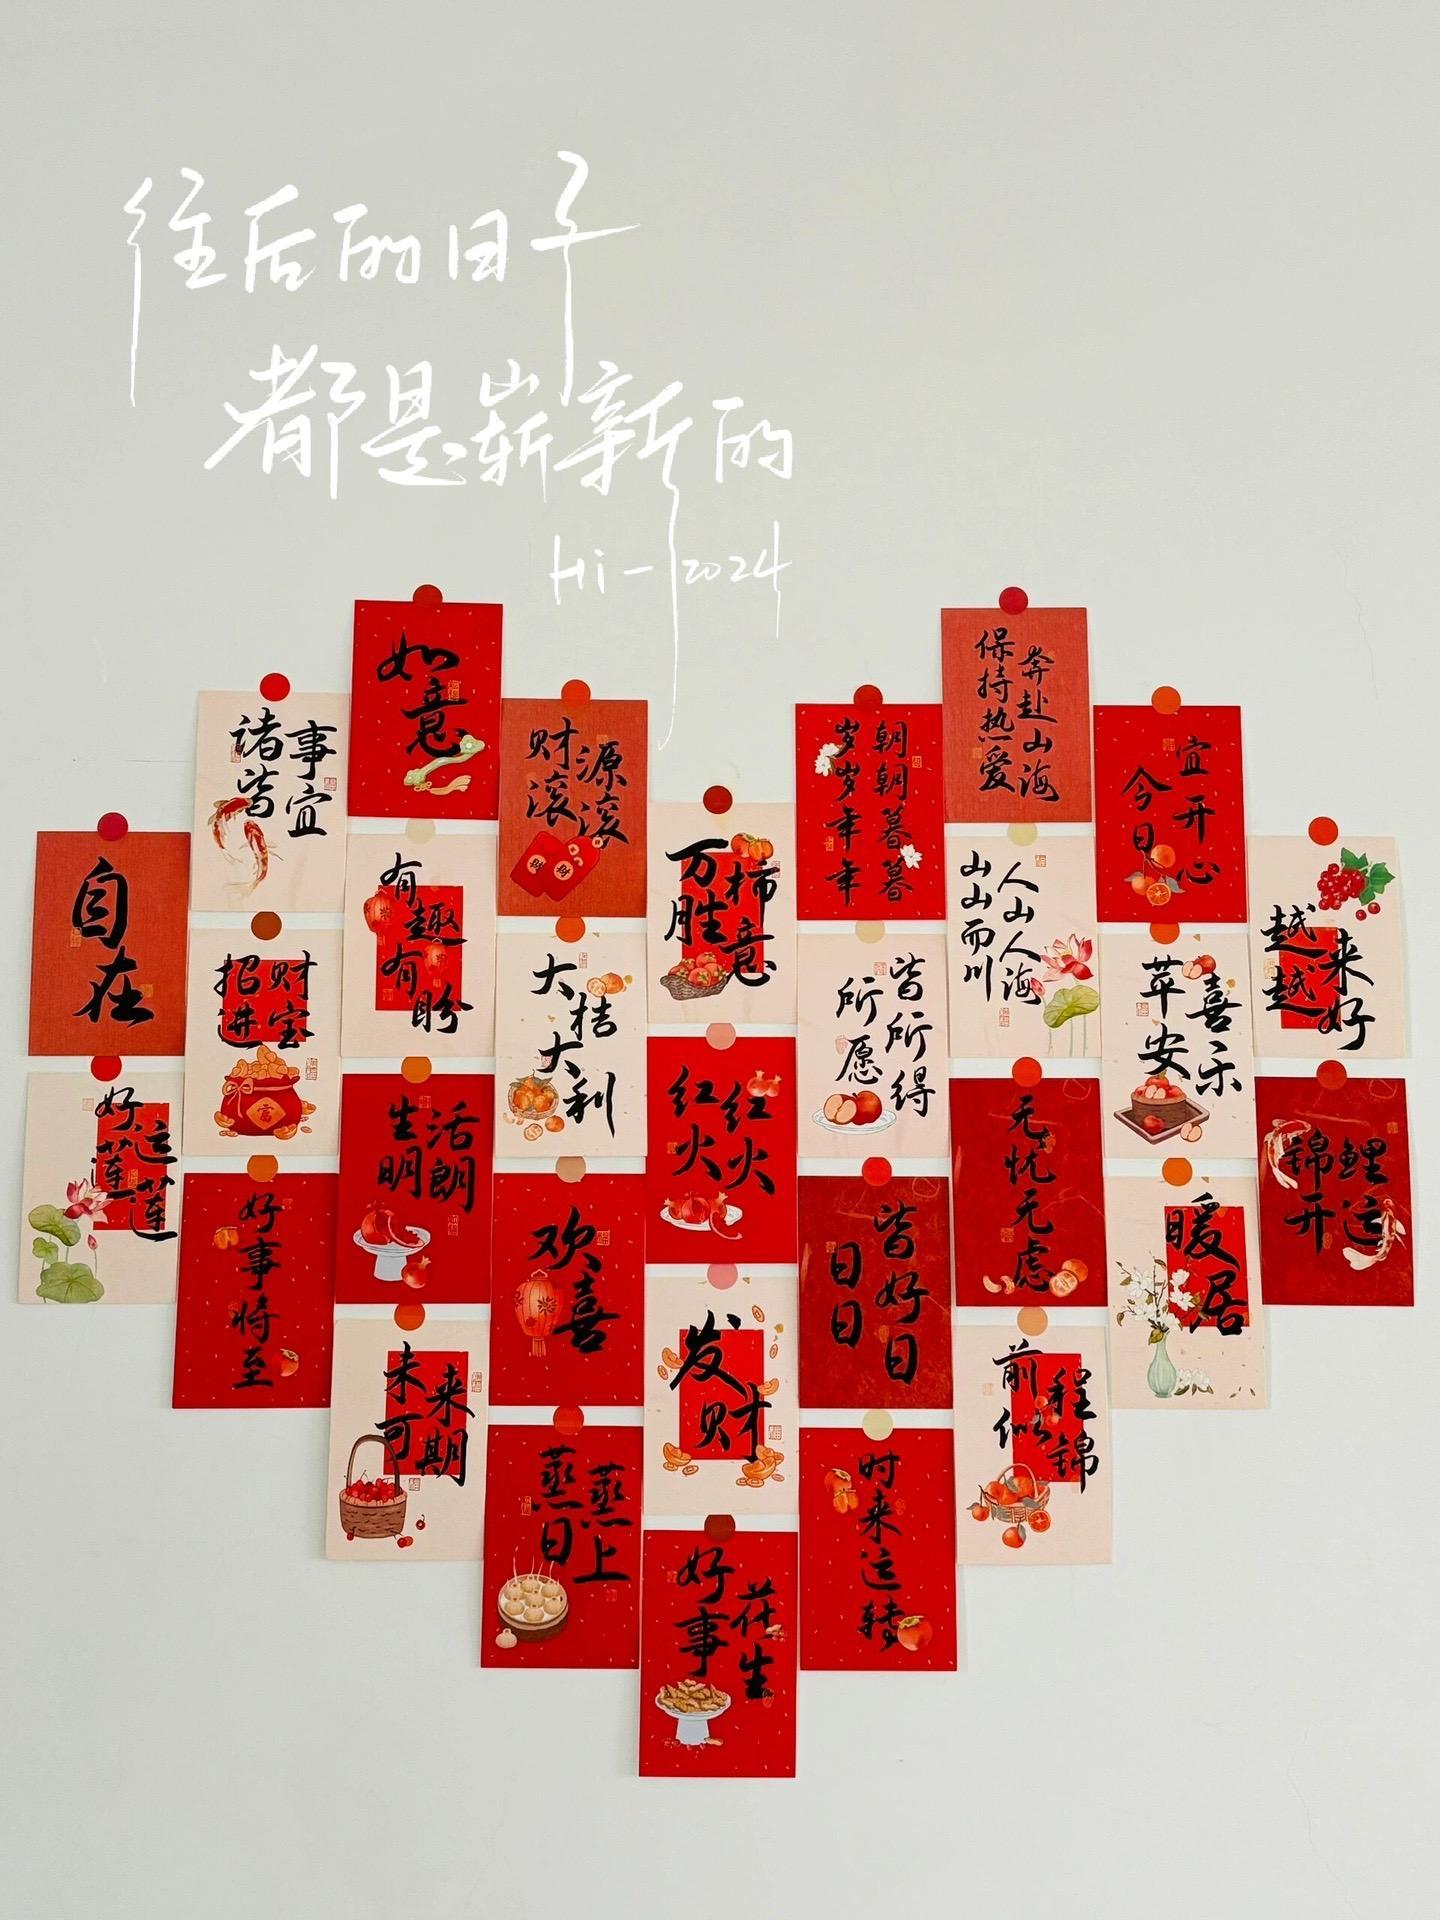 往后的日子
都是崭新的
Hi-2024
如意
奔赴山海
保持热爱
诸事皆宜
财源滚滚
朝朝暮暮
岁岁年年
今日宜开心
自在
有趣有盼
万柿胜意
人山人海
山山而川
越来越好
招财进宝
大桔大利
皆所愿
所得
苹安喜乐
好运莲莲
生活明朗
红红火火
无忧无虑
锦鲤开运
好事将至
欢喜
皆好日
日日
暖居
未来可期
发财
前程似锦
蒸蒸日上
时来运转
好事花生